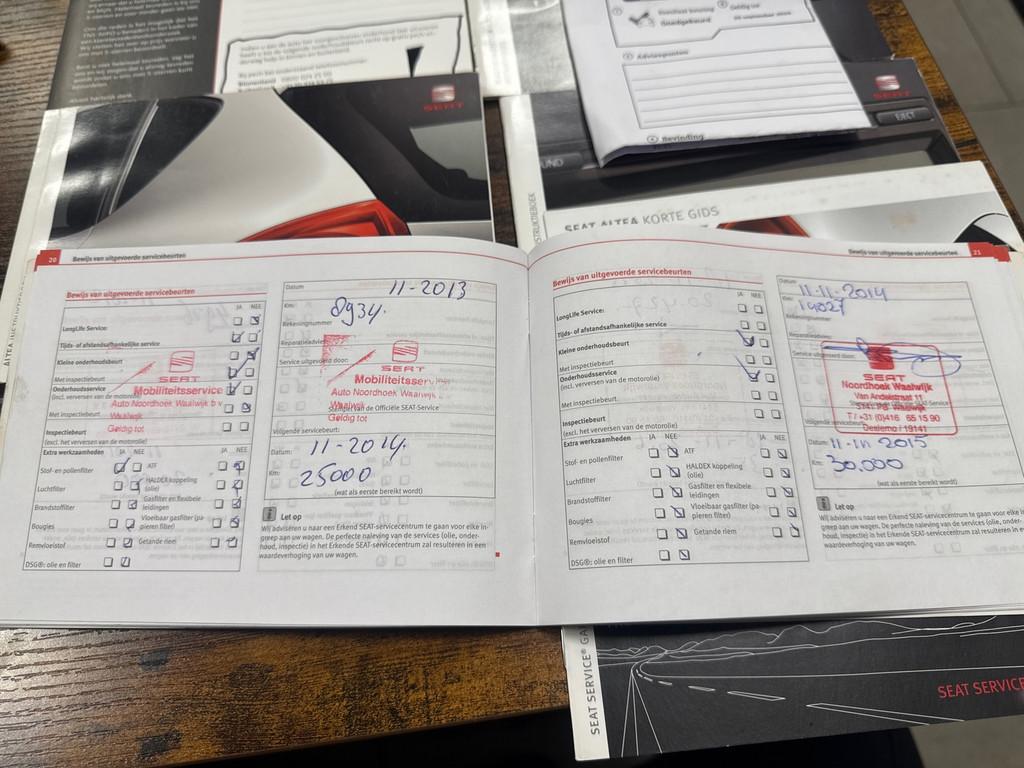 SEAT
EJECT
Goedgekeurd
Adviespunten
Bevinding
SEAT ALTEA KORTE GIDS
20 Bewijs van uitgevoerde servicebeurten
Bewijs van uitgevoerde servicebeurten
JA NEE
LongLife Service:
Tijds- of afstandsafhankelijke service
Kleine onderhoudsbeurt
Met inspectiebeurt
Onderhoudsservice
(incl. verversen van de motorolie)
Met inspectiebeurt
Inspectiebeurt
(excl. het verversen van de motorolie)
SEAT
Mobiliteitsservice
Auto Noordhoek Waalwijk b.v.
Waalwijk
Geldig tot
Extra werkzaamheden JA NEE JA NEE
Stof- en pollenfilter ATF
Luchtfilter HALDEX koppeling (olie)
Brandstoffilter Gasfilter en flexibele leidingen
Bougies Vloeibaar gasfilter (papieren filter)
Remvloeistof Getande riem
DSG®: olie en filter
Datum 11-2013
Km: 8934.
Rekeningnummer
Reparatieadvies
Service uitgevoerd door:
SEAT
Mobiliteitsser
Auto Noordhoek Waalwijk
Waalwijk
Stempel van de Officiële SEAT-Service
Geldig tot
Volgende servicebeurt:
Datum: 11-2014.
Km: 25000
(wat als eerste bereikt wordt)
Let op
Wij adviseren u naar een Erkend SEAT-servicecentrum te gaan voor elke in-
greep aan uw wagen. De perfecte naleving van de services (olie, onder-
houd, inspectie) in het Erkende SEAT-servicecentrum zal resulteren in een
waardeverhoging van uw wagen.
Bewijs van uitgevoerde servicebeurten 21
Bewijs van uitgevoerde servicebeurten
JA NEE
LongLife Service:
Tijds- of afstandsafhankelijke service
Kleine onderhoudsbeurt
Met inspectiebeurt
Onderhoudsservice
(incl. verversen van de motorolie)
Met inspectiebeurt
Inspectiebeurt
(excl. het verversen van de motorolie)
Extra werkzaamheden JA NEE JA NEE
Stof- en pollenfilter ATF
Luchtfilter HALDEX koppeling (olie)
Brandstoffilter Gasfilter en flexibele leidingen
Bougies Vloeibaar gasfilter (papieren filter)
Remvloeistof Getande riem
DSG®: olie en filter
Datum 11-11-2014
Km: 14027
Rekeningnummer
Service uitgevoerd door:
SEAT
Noordhoek Waalwijk
Van Andelstraat 11
Waalwijk
T/+31 (0)416 65 15 90
Dealerno / 19141
Datum: 11-11-2015
Km: 30.000
(wat als eerste bereikt wordt)
Let op
Wij adviseren u naar een Erkend SEAT-servicecentrum te gaan voor elke in-
greep aan uw wagen. De perfecte naleving van de services (olie, onder-
houd, inspectie) in het Erkende SEAT-servicecentrum zal resulteren in een
waardeverhoging van uw wagen.
SEAT SERVICE®
SEAT SERVICE